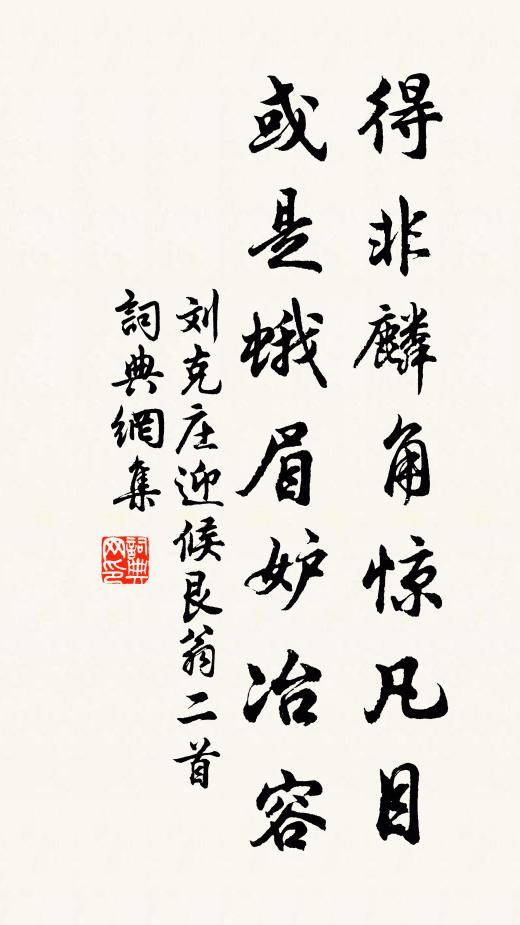 得非麟角惊凡目
或是蛾眉妒冶容
刘克庄迎候艮翁二首
詞典網集
詞典网印